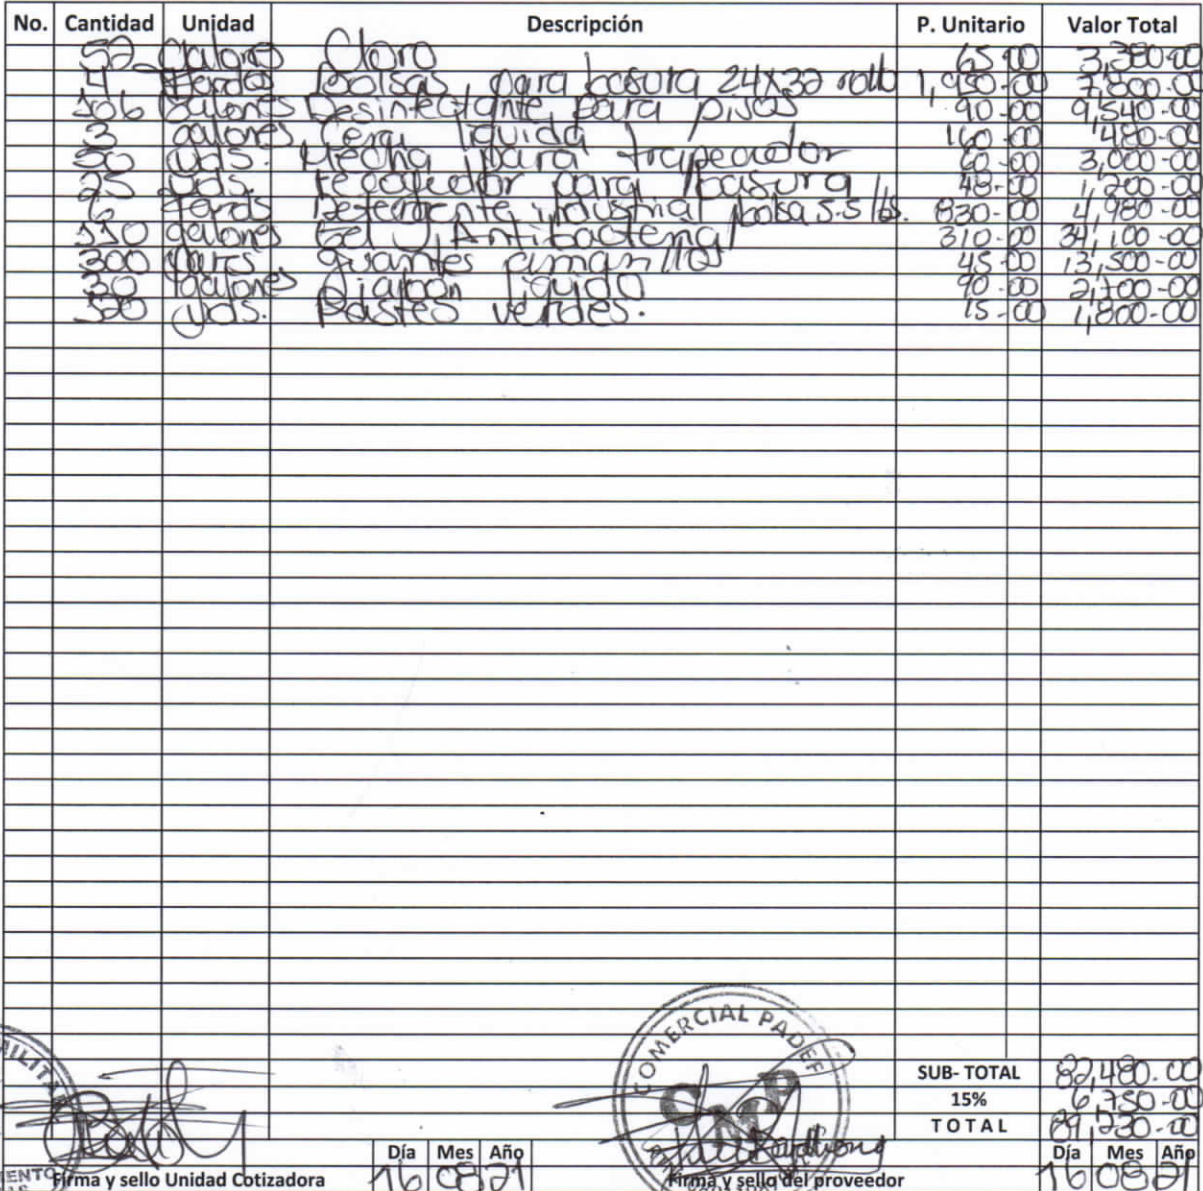 No. Cantidad Unidad Descripción P. Unitario Valor Total
52 galones Cloro 65-00 3,380-00
4 Fardos Bolsas para basura 24x32 rollo 1,950-00 7,800-00
106 Galones Desinfectante para pisos 90-00 9,540-00
3 galones Cera liquida 160-00 480-00
50 uds. Mecha para trapeador 60-00 3,000-00
25 uds. recogedor para basura 48-00 1,200-00
6 fards Detergente industrial bolsa 5.5 lbs. 830-00 4,980-00
110 galones Gel Antibacterial 310-00 34,100-00
300 pars guantes amarillos 45-00 13,500-00
30 galones Jiabon liquido 90-00 2,700-00
120 uds. Pastes verdes. 15-00 1,800-00
COMERCIAL PADEF
SUB- TOTAL 82,480.00
15% 6,750-00
TOTAL 89,230-00
Día Mes Año Día Mes Año
Firma y sello Unidad Cotizadora 16 08 21 Firma y sello del proveedor 16 08 21